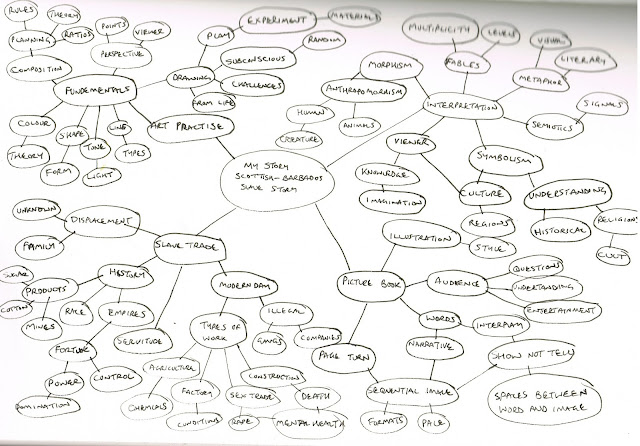 RULES
THEORY
PLANNING
RATIOS
COMPOSITION
POINTS
VIEWER
PERSPECTIVE
FUNDEMENTALS
COLOUR
THEORY
SHAPE
FORM
TONE
LIGHT
LINE
TYPES
ART PRACTISE
DRAWING
PLAY
EXPERIMENT
MATERIAL
SUBCONSCIOUS
RANDOM
CHALLENGES
FROM LIFE
MY STORY
SCOTTISH-BARBADOS
SLAVE STORY
MORPHISM
ANTHROPOMORPHISM
HUMAN
CREATURE
ANIMALS
INTERPRETATION
MULTIPLICITY
LEVELS
FABLES
VISUAL
LITERARY
METAPHOR
SIGNALS
SEMIOTICS
VIEWER
KNOWLEDGE
IMAGINATION
SYMBOLISM
CULTURE
REGIONS
STYLE
UNDERSTANDING
HISTORICAL
RELIGION
CULT
ILLUSTRATION
PICTURE BOOK
AUDIENCE
QUESTIONS
UNDERTANDING
ENTERTAINMENT
WORDS
NARRATIVE
INTERPLAY
SHOW NOT TELL
SPACES BETWEEN
WORD AND IMAGE
PAGE TURN
SEQUENTIAL IMAGE
FORMATS
SLAVE TRADE
DISPLACEMENT
UNKNOWN
FAMILY
HISTORY
PRODUCTS
SUGAR
COTTON
MINES
RACE
EMPIRES
FORTUNE
POWER
DOMINATION
CONTROL
SERVITUDE
MODERN DAY
ILLEGAL
GANGS
COMPANIES
TYPES OF
WORK
AGRICULTURE
CHEMICALS
FACTORY
CONDITIONS
SEX TRADE
RAPE
CONSTRUCTION
DEATH
MENTAL HEALTH